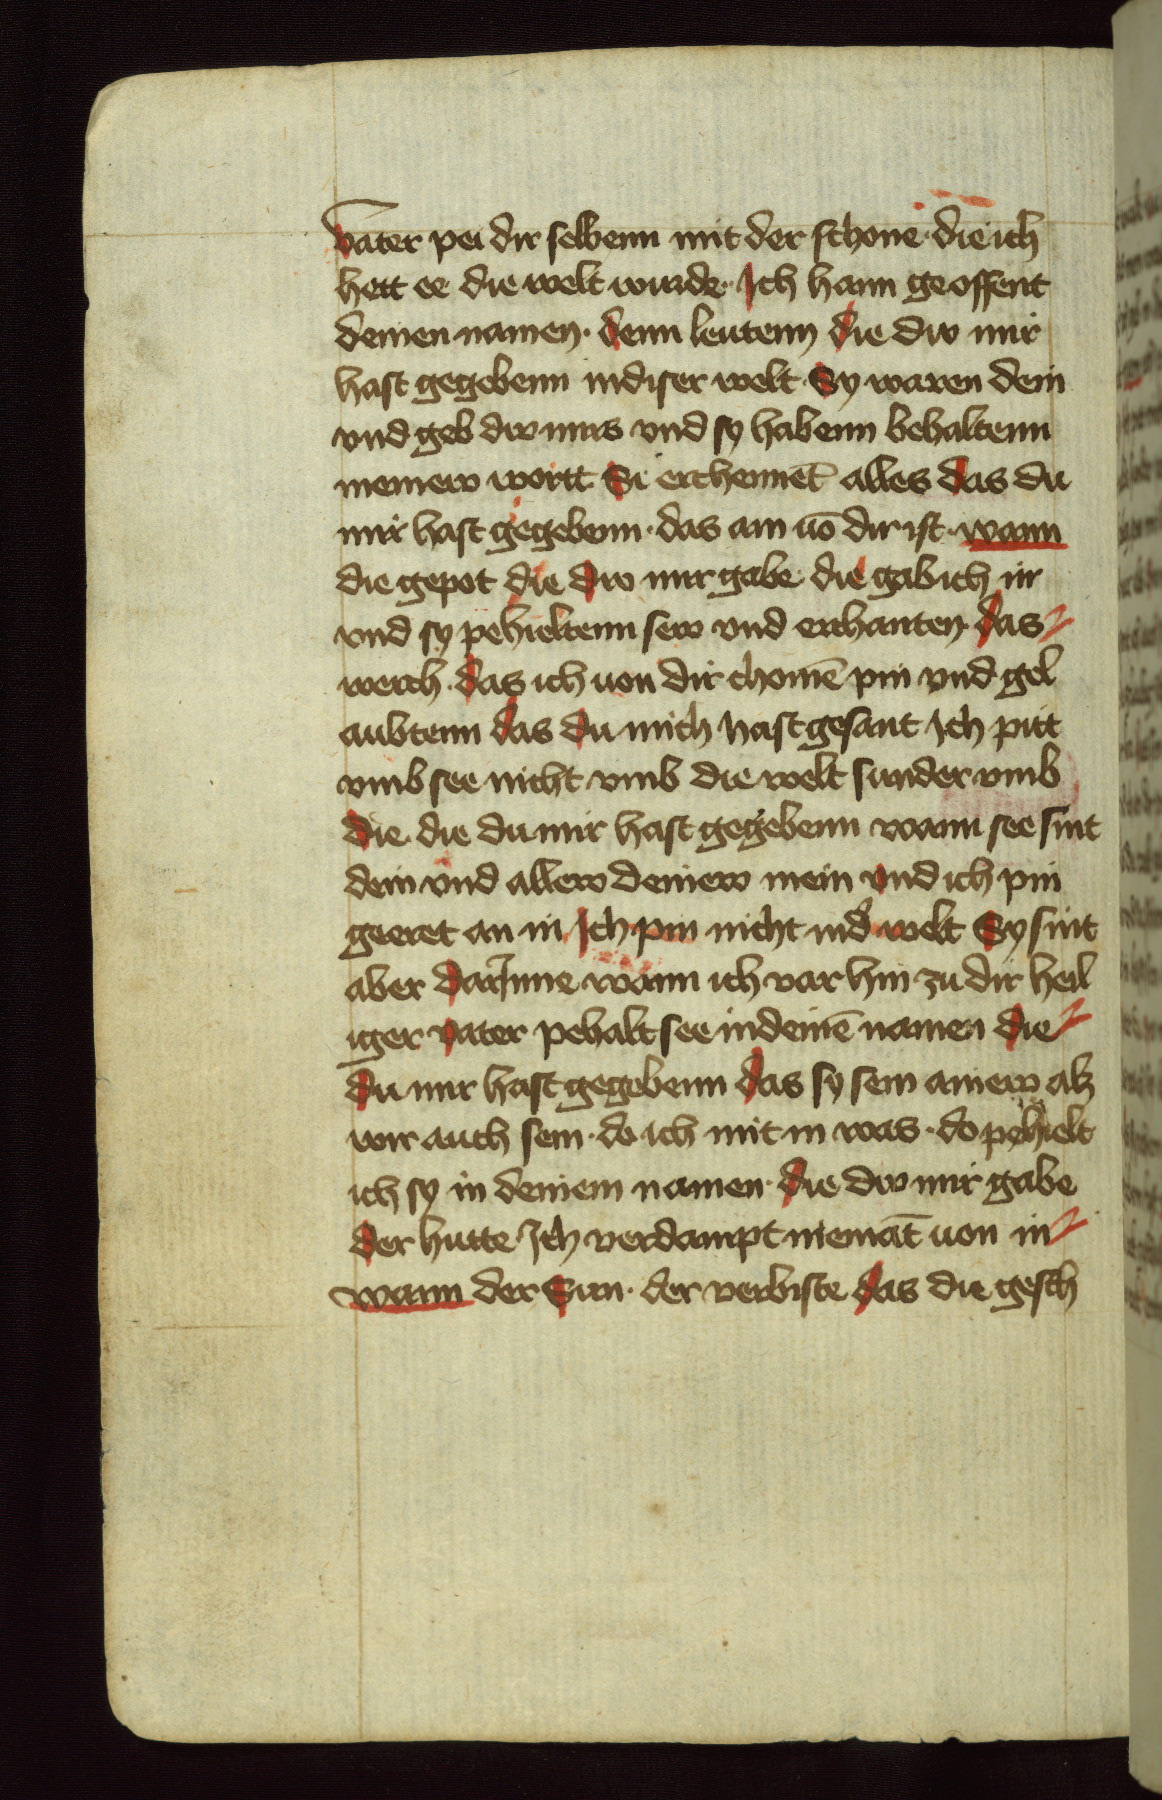 vater pei dir selbenn mit der schone · die ich
hett ee die welt wurde · Ich hann geoffent
deinen namen · denn leutenn die dw mir
hast gegebenn indiser welt · Sy waren dein
vnd geb dw mirs vnd sy habenn behaltenn
meinew wortt Si erchennēt alles das du
mir hast gegebenn · das am uō dir ist · wann
die gepot die dw mir gabe die gab ich in
vnd sy pehieltenn sew vnd erchanten · das
werch · das ich uon dir chomē pin vnd gel
aubtenn das du mich hast gesant Ich pitt
vmb see nicht vmb die welt sunder vmb
die die du mir hast gegebenn wann see sint
dein vnd allew deinew mein vnd ich pin
geeret an in Ich pin nicht ind welt Sy sint
aber darInne wann ich var hin zu dir heil
iger vater pehalt see indeinē namen die
du mir hast gegebenn das sy sein ainew alz
wir auch sein · do ich mit in was · do pehielt
ich sy in deinem namen · die dw mir gabe
der hutte Ich verdampt niemāt uon in
wann der Sun · der verliste das die gesch